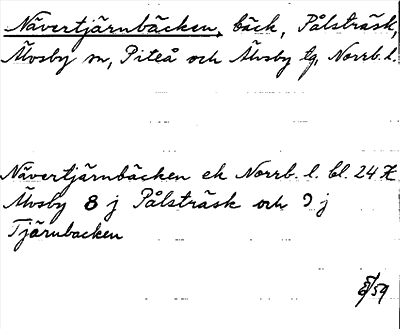 Nävertjärnbäcken, bäck, Pålsträsk,
Älvsby sn, Piteå och Älvsby tg, Norrb. l.
Nävertjärnbäcken ek Norrb. l. bl. 24 H
Älvsby 8 j Pålsträsk och 9 j
Tjärnbacken
/59